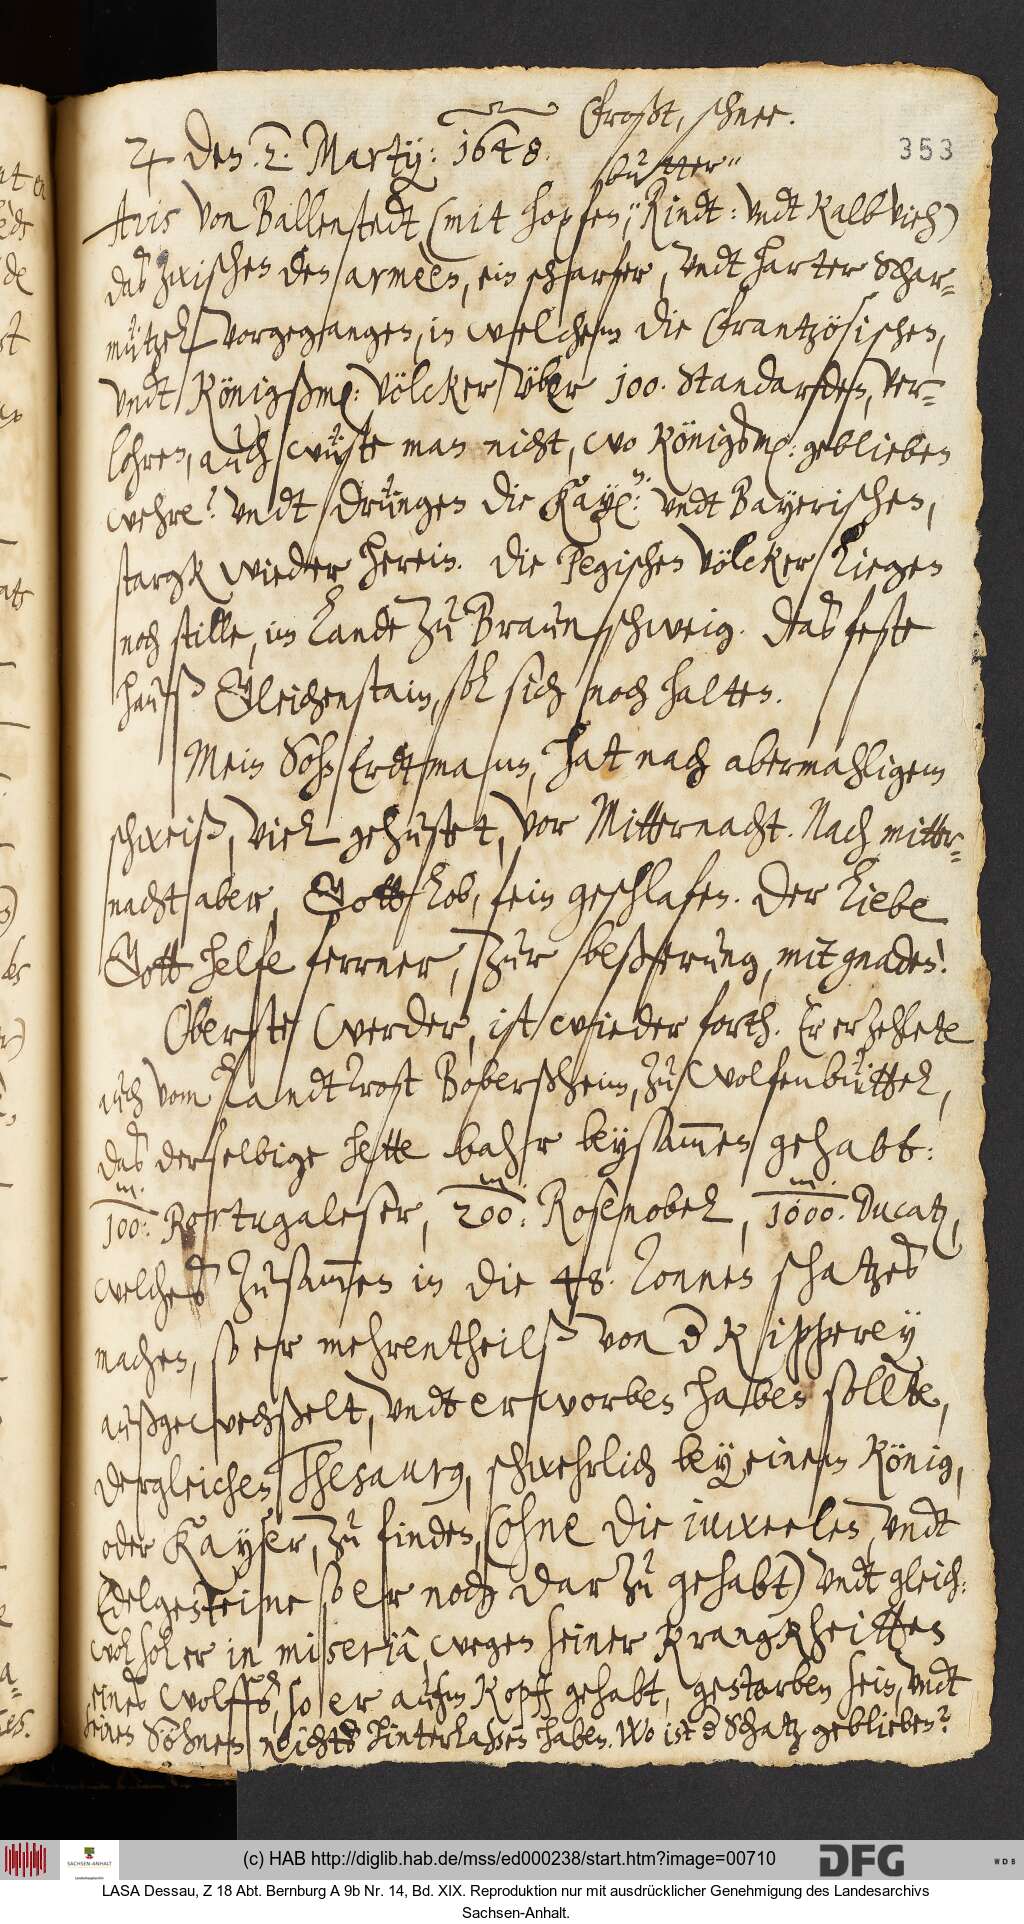 ♃ den 2. Martij: 1648. (frost, schnee.
353
butter"
Avis von Ballenstedt (mit hopfen," Rindt: vndt kalbvieh)
das zwischen den armèen, ein scharfer, vndt harter Schar-
mützel vorgegangen, in welchem die Frantzösischen,
vndt Königßm: völcker vber 100. Standarden, ver-
lohren, auch wüste man nicht, wo Königsm: geblieben
wehre? vndt drüngen die Kay: vndt Bayerischen,
stargk wieder herein. Die Hessischen völcker liegen
noch stille, im lande zu Braunschweig. das feste
hauß Gleichenstain, sol sich noch halten.
Mein Sohn Erdtmann, hat nach abermahligem
schweiß, viel gehustet, vor Mitternacht. Nach mitter-
nacht aber, Gott lob, fein geschlafen. Der liebe
Gott helfe ferrner, zur beßerung, mit gnaden!
Oberste Werder, ist wieder forth. Er erzehlete
auch vom Landtrost Boberßheim, zu Wolfenbüttel,
das derselbige hette bahr beysammen gehabt:
m.
100: Portugaleser, m. 200: Rosenobel, m. 1000. Ducatz,
welches zusammen in die 48. Tonnen schatzes
machen, so er mehrentheilß von d Kipperey
außgewechßelt, vndt erworben haben sollte,
dergleichen Thesaurg, schwehrlich bey einem König,
oder Kayser, zu finden, (ohne die iuweelen, vndt
Edelgesteine so er noch darzu gehabt) vndt gleich:
wol sol er in miseriâ, wegen seiner krangkheitten
eines Wolffs, so er aufm Kopff gehabt, gestorben sein, vndt
seinen Söhnen nichts hinterlaßen haben. Wo ist d Schatz geblieben?
(c) HAB http://diglib.hab.de/mss/ed000238/start.htm?image=00710
SACHSEN-ANHALT
DFG
WDB
LASA Dessau, Z 18 Abt. Bernburg A 9b Nr. 14, Bd. XIX. Reproduktion nur mit ausdrücklicher Genehmigung des Landesarchivs
Sachsen-Anhalt.